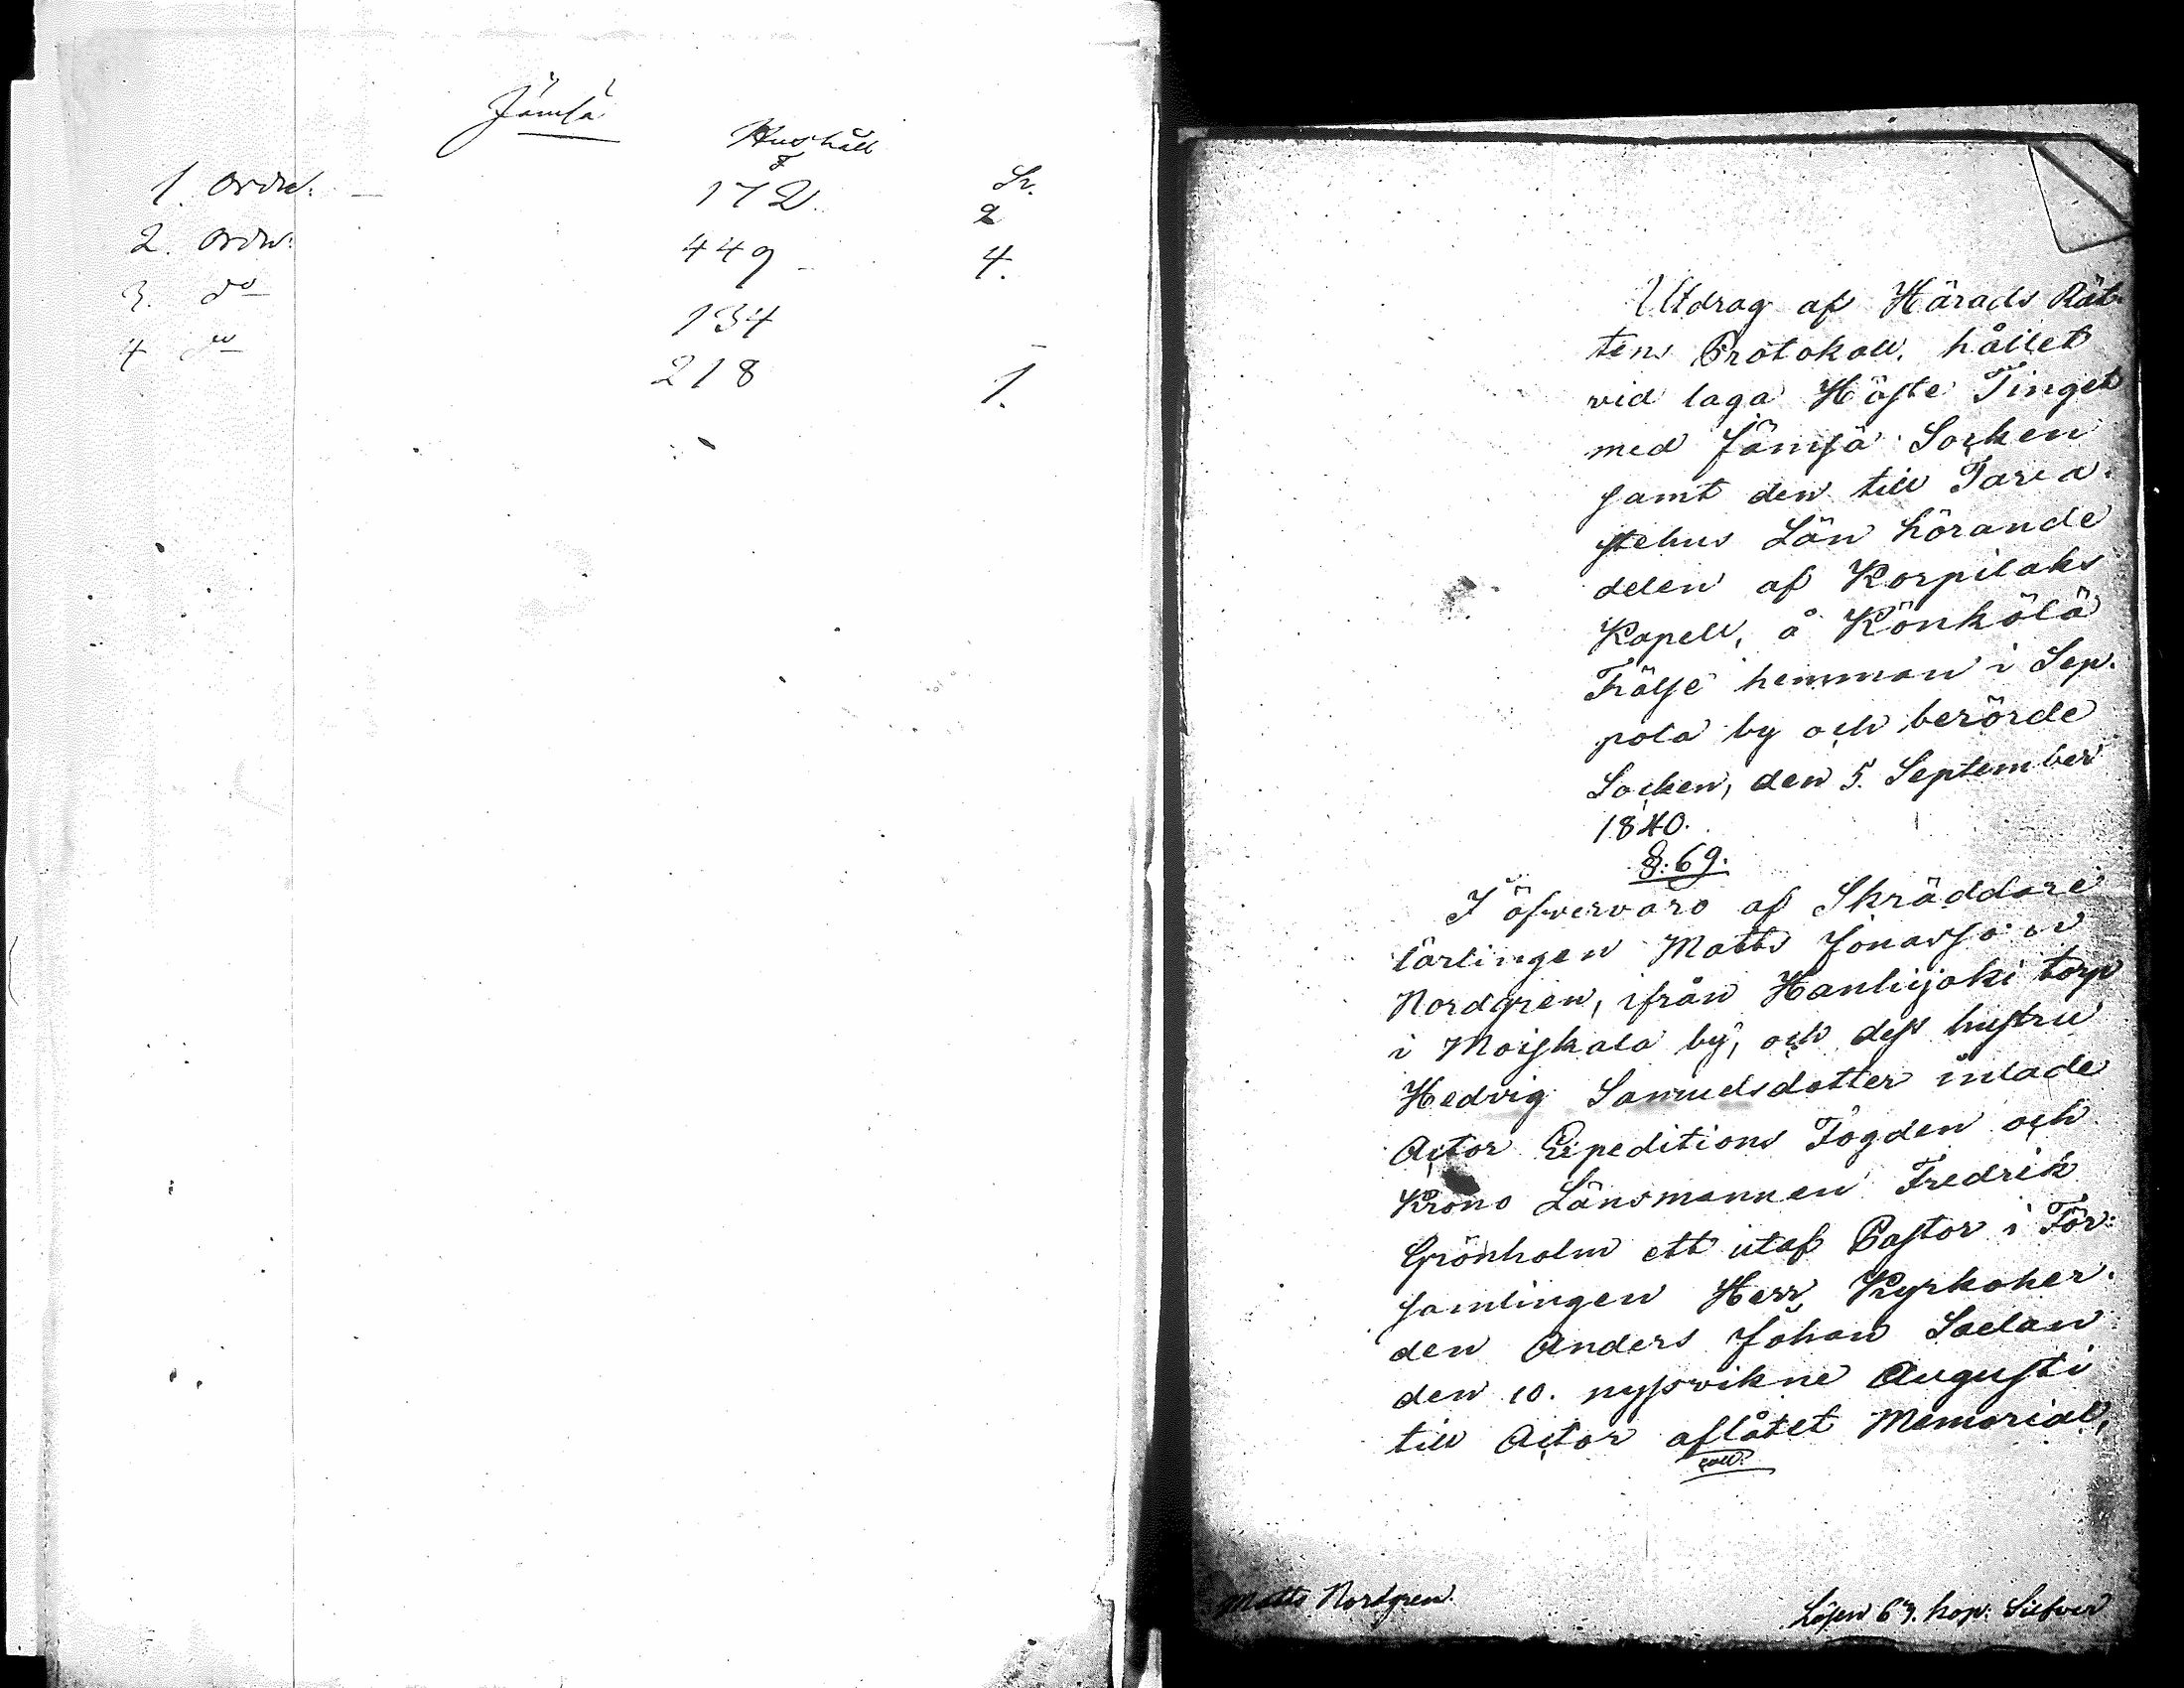 Jämsä
Hushåll
1. Ordn: 172. Sr. 2
2. Ordn: 449 4.
3. do 134
4 do 218 1.
Utdrag af Härads Rät-
tens Protokoll, hållet
vid laga Höste Tinget
med Jämsä Socken
samt den till Tava-
stehus Län hörande
delen af Korpilaks
Kapell, å Könkölä
Frälse hemman i Sep-
pola by och berörde
Socken, den 5. September
1840.
§. 69.
I öfvervaro af Skräddare
lärlingen Matts Jonasson
Nordgren, ifrån Hanhijoki torp
i Moiskala by, och dess hustru
Hedvig Samuelsdotter inlade
Actor Expeditions Fogden och
Krono Länsmannen Fredrik
Grönholm ett utaf Pastor i För-
samlingen Herr Kyrkoher-
den Anders Johan Saelan
den 10. nyssvikne Augusti
till Actor aflåtet Memorial,
Matts Nordgren.
Lösen 63. kop: Silfver